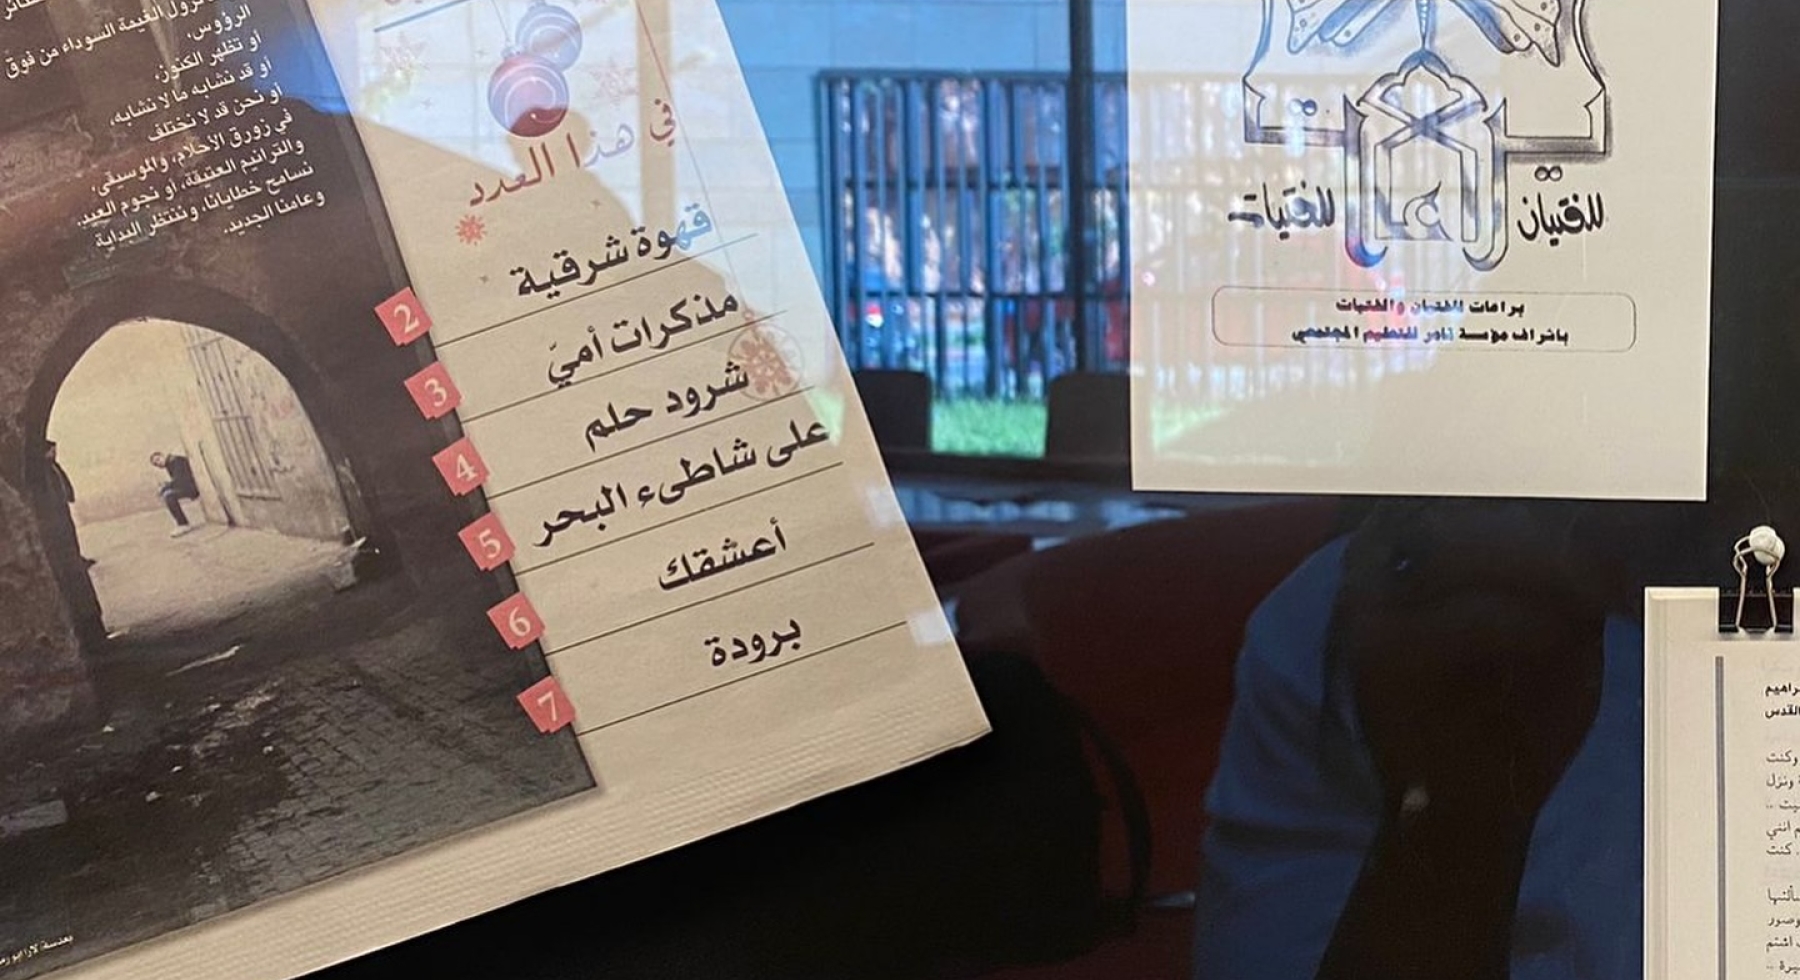 نزول الغيمة السوداء من فوق
الرؤوس،
أو تظهر الكنوز،
أو قد نشابه ما لا نشابه،
أو نحن قد لا نختلف
في زورق الأحلام، والموسيقى،
والترانيم العتيقة، أو نجوم العيد.
نسامح خطايانا، وننتظر البداية
وعامنا الجديد.
في هذا العدد
قهوة شرقية
2
مذكرات أميّ
3
شرود حلم
4
على شاطىء البحر
5
أعشقك
6
برودة
7
للفتيان
للفتيات
براعات للفتيان والفتيات
باشراف مؤسسة تامر للتعليم المجتمعي
القدس
وكنت
ونزل
انني
كنت
وصور
اشتم